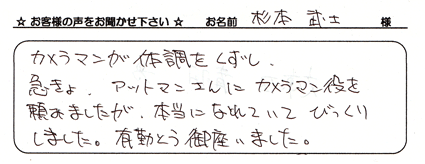 ☆ お客様の声をお聞かせ下さい ☆ お名前 杉本 武士 様
カメラマンが体調をくずし、
急きょ、アットマンさんにカメラマン役を
頼みましたが、本当になれていてびっくり
しました。有勤とう御座いました。